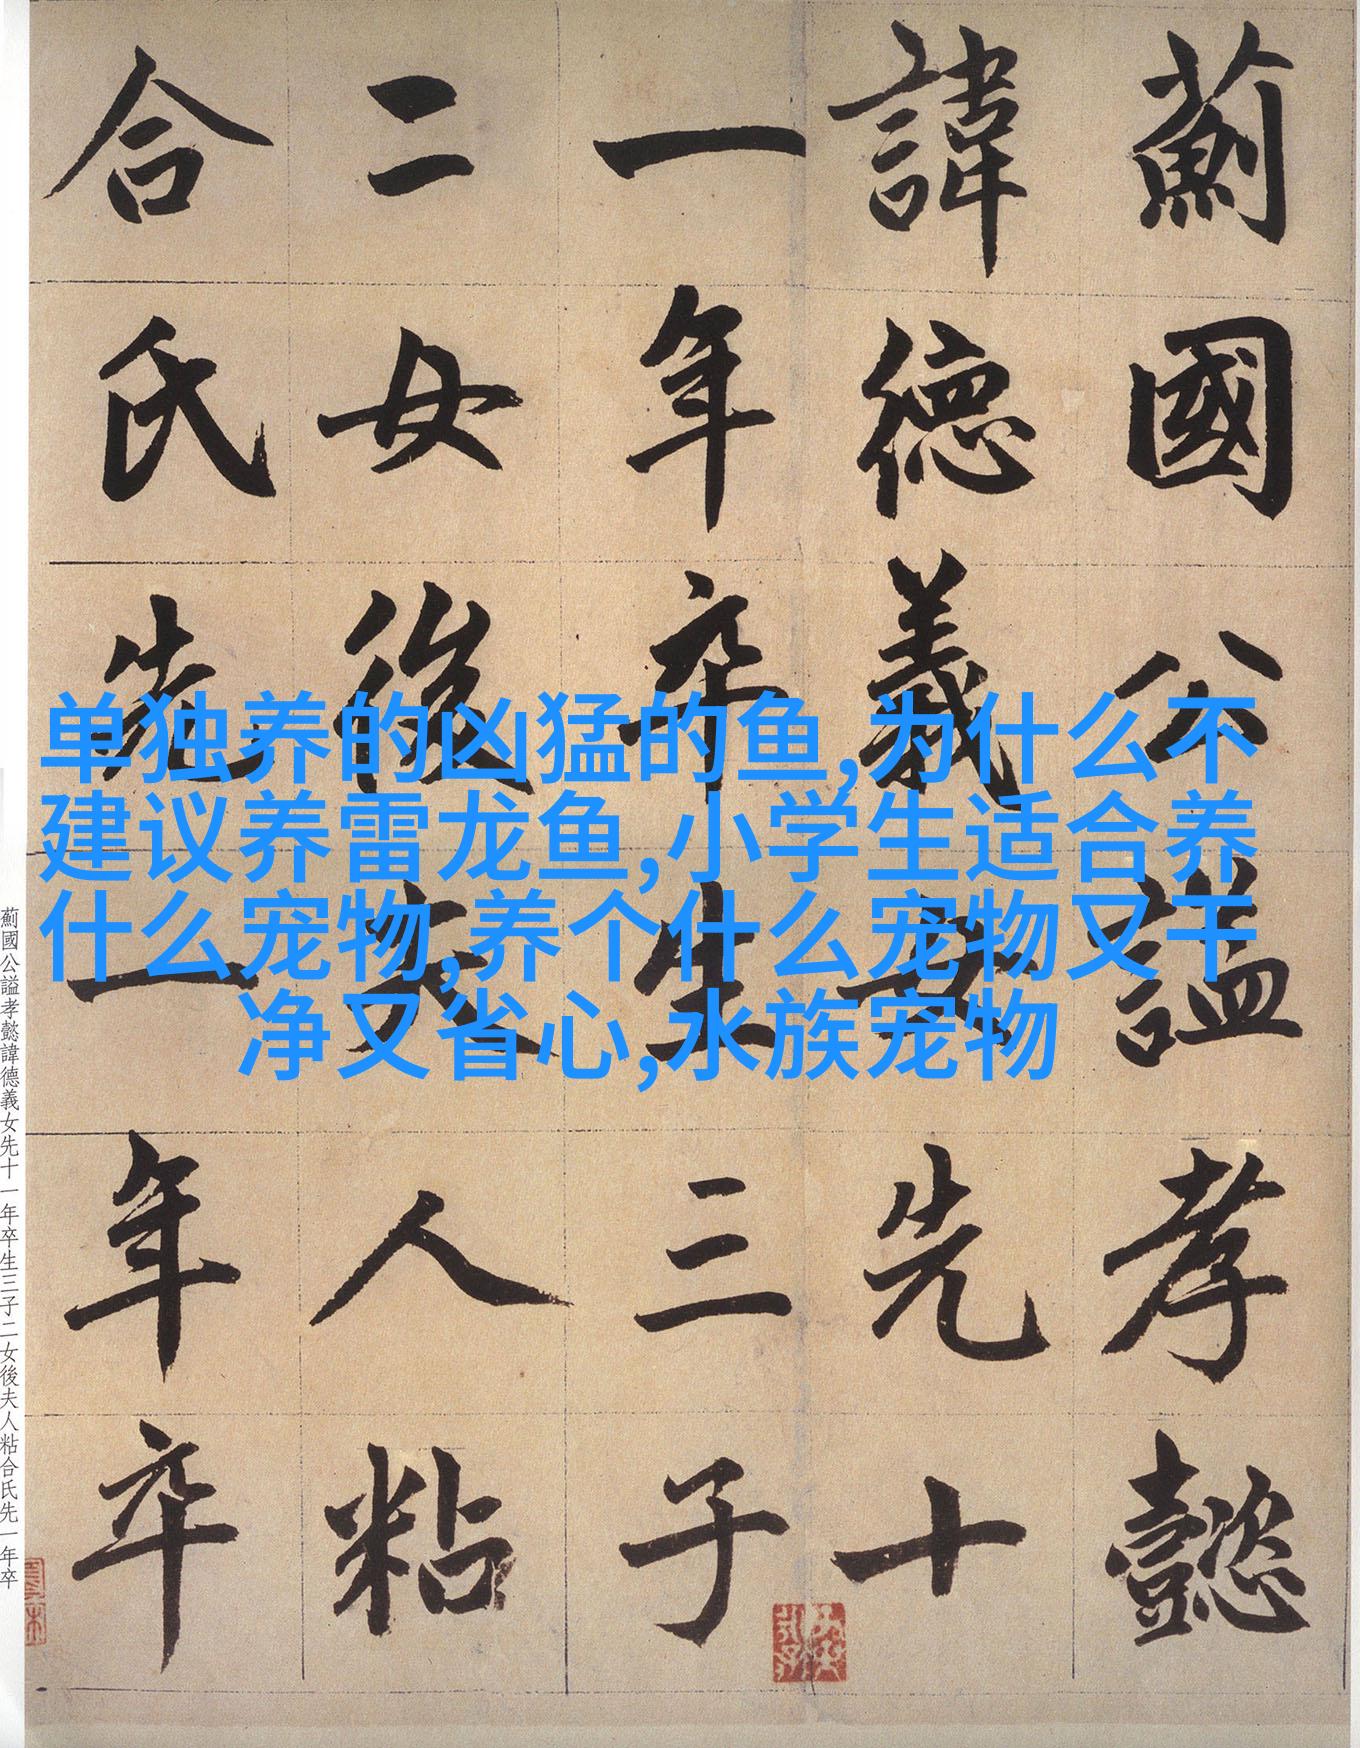 薊國公謚孝懿
諱德義女先十
一年卒生三子
二女後夫人粘
合氏先一年卒
薊國公謚孝懿諱德義女先十一年卒生三子二女後夫人粘合氏先一年卒
单独养的凶猛的鱼,为什么不
建议养雷龙鱼,小学生适合养
什么宠物,养个什么宠物又干
净又省心,水族宠物